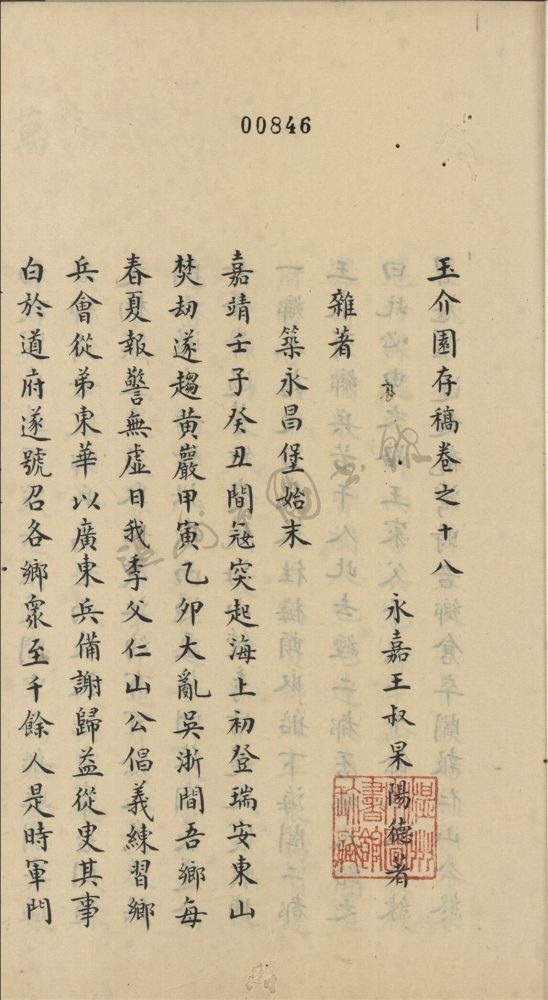 00846
玉介園存稿卷之十八
永嘉王叔杲陽德著
雜著
築永昌堡始末
嘉靖壬子癸丑間寇突起海上初登瑞安東山
焚刼遂趨黃巖甲寅乙卯大亂吳浙間吾鄉每
春夏報警無虛日我季父仁山公倡義練習鄉
兵會從弟東華以廣東兵備謝歸益從臾其事
白於道府遂號召各鄉衆至千餘人是時軍門